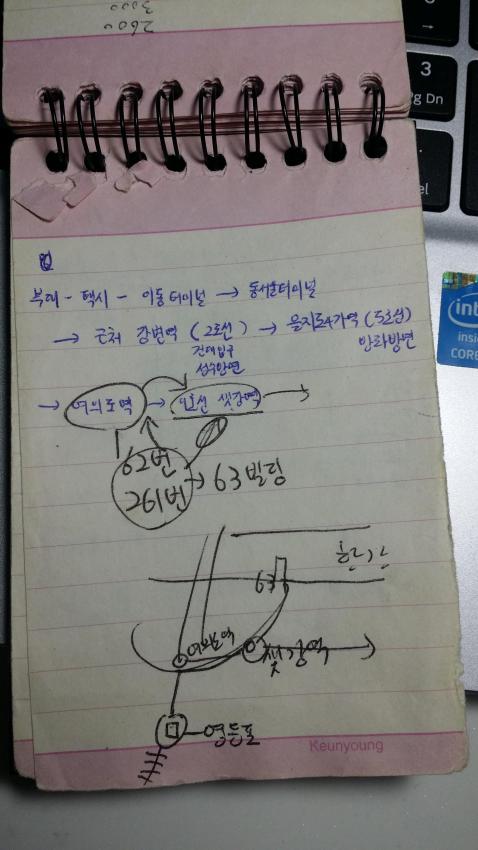 2600
3000
3
Pg Dn
부대 - 택시 - 이동터미널 → 동서울터미널
→ 근처 강변역 (2호선) → 을지로4가역 (5호선)
건대입구
성수방면
방화방면
→ 여의도역 → 9호선 샛강역 →
62번
261번 → 63빌딩
한강
63
여의도역
샛강역
영등포
Keunyoung
intel
inside
CORE